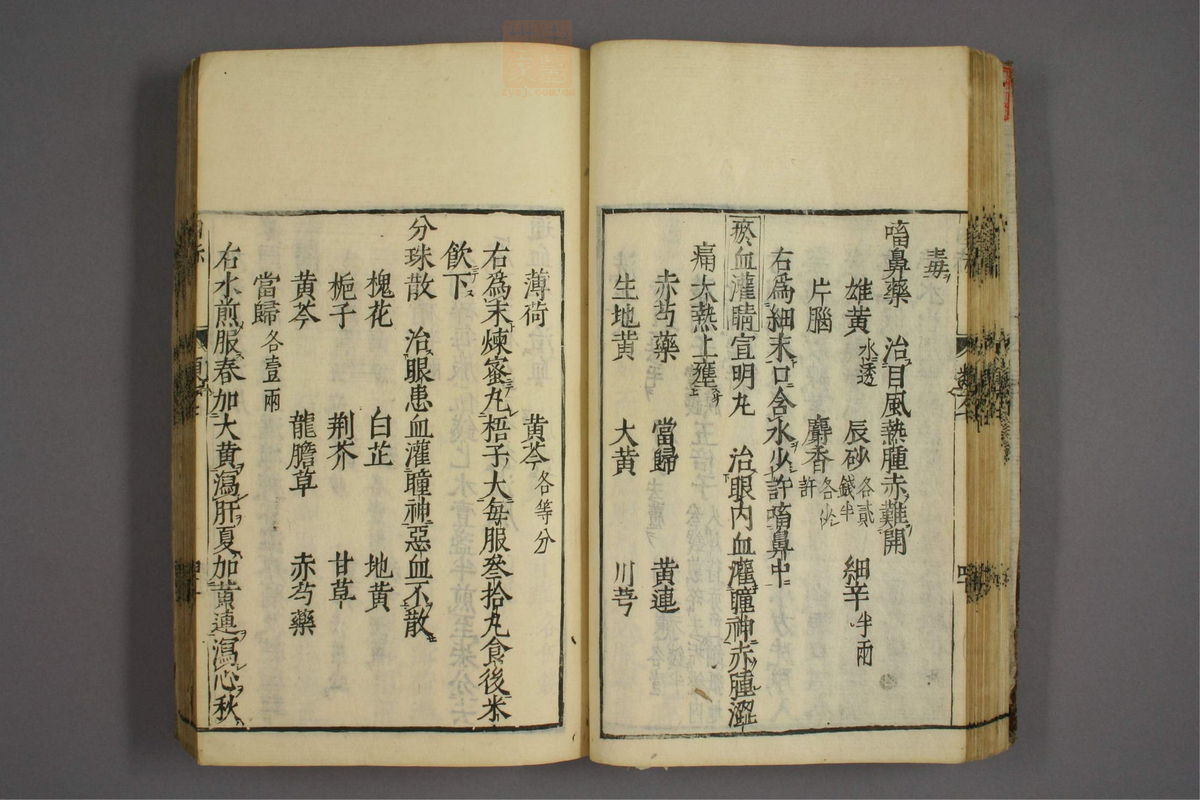 毒
㗜鼻藥 治目風熱腫赤難開
雄黃水透 辰砂各貳錢半 細辛半兩
片腦 麝香各少許
右為細末口含水少許㗜鼻中
瘀血灌睛宣明丸 治眼內血灌瞳神赤腫澀
痛大熱上壅
赤芍藥 當歸 黃連
生地黃 大黃 川芎
薄荷 黃芩各等分
右為末煉蜜丸梧子大每服叄拾丸食後米
飲下
分珠散 治眼患血灌瞳神惡血不散
槐花 白芷 地黃
梔子 荆芥 甘草
黃芩 龍膽草 赤芍藥
當歸各壹兩
右水煎服春加大黃瀉肝夏加黃連瀉心秋